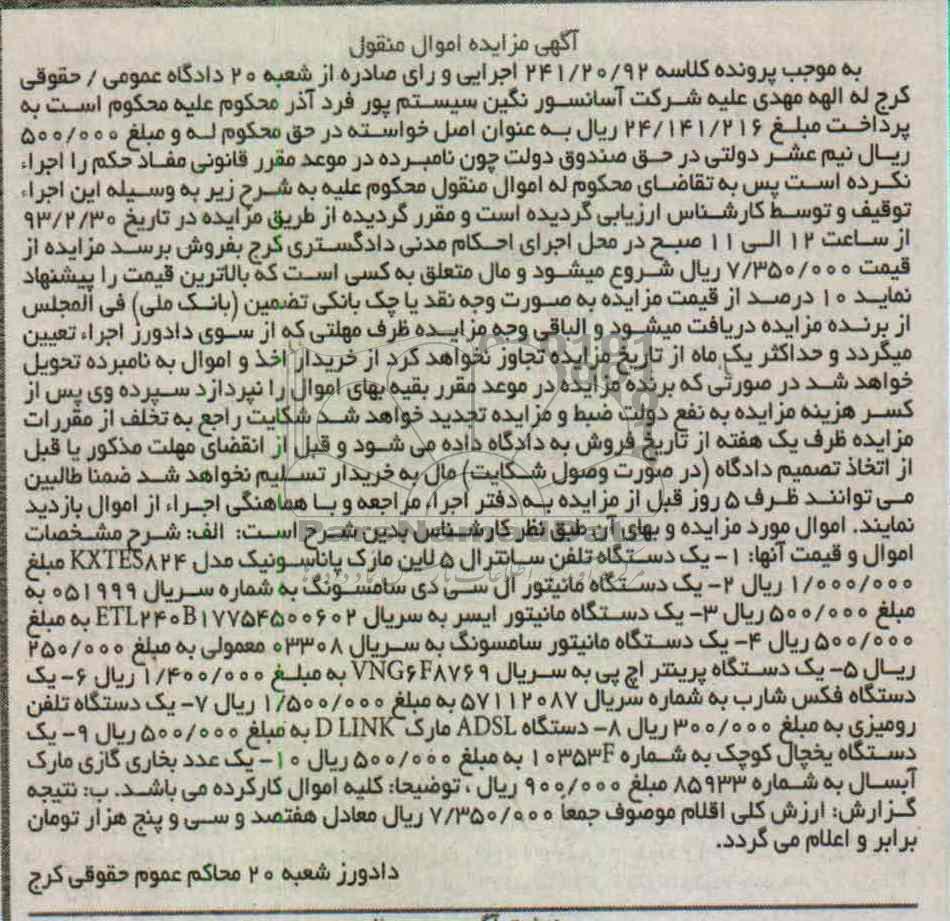 آگهی مزایده اموال منقول
به موجب پرونده کلاسه ۲۴۱/۲۰/۹۲ اجرایی و رای صادره از شعبه ۲۰ دادگاه عمومی / حقوقی
کرج له الهه مهدی علیه شرکت آسانسور نگین سیستم پور فرد آذر محکوم علیه محکوم است به
پرداخت مبلغ ۲۴/۱۴۱/۲۱۶ ریال به عنوان اصل خواسته در حق محکوم له و مبلغ ۵۰۰/۰۰۰
ریال نیم عشر دولتی در حق صندوق دولت چون نامبرده در موعد مقرر قانونی مفاد حکم را اجراء
نکرده است پس به تقاضای محکوم له اموال منقول محکوم علیه به شرح زیر به وسیله این اجراء
توقیف و توسط کارشناس ارزیابی گردیده است و مقرر گردیده از طریق مزایده در تاریخ ۹۳/۲/۳۰
از ساعت ۱۲ الی ۱۱ صبح در محل اجرای احکام مدنی دادگستری کرج بفروش برسد مزایده از
قیمت ۷/۳۵۰/۰۰۰ ریال شروع میشود و مال متعلق به کسی است که بالاترین قیمت را پیشنهاد
نماید ۱۰ درصد از قیمت مزایده به صورت وجه نقد یا چک بانکی تضمین (بانک ملی) فی المجلس
از برنده مزایده دریافت میشود و الباقی وجه مزایده ظرف مهلتی که از سوی دادورز اجراء تعیین
میگردد و حداکثر یک ماه از تاریخ مزایده تجاوز نخواهد کرد از خریدار اخذ و اموال به نامبرده تحویل
خواهد شد در صورتی که برنده مزایده در موعد مقرر بقیه بهای اموال را نپردازد سپرده وی پس از
کسر هزینه مزایده به نفع دولت ضبط و مزایده تجدید خواهد شد شکایت راجع به تخلف از مقررات
مزایده ظرف یک هفته از تاریخ فروش به دادگاه داده می شود و قبل از انقضای مهلت مذکور یا قبل
از اتخاذ تصمیم دادگاه (در صورت وصول شکایت) مال به خریدار تسلیم نخواهد شد ضمنا طالبین
می توانند ظرف ۵ روز قبل از مزایده به دفتر اجراء مراجعه و با هماهنگی اجراء از اموال بازدید
نمایند. اموال مورد مزایده و بهای آن طبق نظر کارشناس بدین شرح است: الف: شرح مشخصات
اموال و قیمت آنها: ۱- یک دستگاه تلفن سانترال ۵ لاین مارک پاناسونیک مدل KXTES۸۲۴ مبلغ
۱/۰۰۰/۰۰۰ ریال ۲- یک دستگاه مانیتور ال سی دی سامسونگ به شماره سریال ۰۵۱۹۹۹ به
مبلغ ۵۰۰/۰۰۰ ریال ۳- یک دستگاه مانیتور ایسر به سریال ETL۲۴۰B۱۷۷۵۴۵۰۰۶۰۲ به مبلغ
۵۰۰/۰۰۰ ریال ۴- یک دستگاه مانیتور سامسونگ به سریال ۰۳۳۰۸ معمولی به مبلغ ۲۵۰/۰۰۰
ریال ۵- یک دستگاه پرینتر اچ پی به سریال VNG۶F۸۷۶۹ به مبلغ ۱/۴۰۰/۰۰۰ ریال ۶- یک
دستگاه فکس شارب به شماره سریال ۵۷۱۱۲۰۸۷ به مبلغ ۱/۵۰۰/۰۰۰ ریال ۷- یک دستگاه تلفن
رومیزی به مبلغ ۳۰۰/۰۰۰ ریال ۸- دستگاه ADSL مارک D LINK به مبلغ ۵۰۰/۰۰۰ ریال ۹- یک
دستگاه یخچال کوچک به شماره ۱۰۳۵۳F به مبلغ ۵۰۰/۰۰۰ ریال ۱۰- یک عدد بخاری گازی مارک
آبسال به شماره ۸۵۹۳۳ مبلغ ۹۰۰/۰۰۰ ریال ، توضیحا: کلیه اموال کارکرده می باشد. ب: نتیجه
گزارش: ارزش کلی اقلام موصوف جمعا ۷/۳۵۰/۰۰۰ ریال معادل هفتصد و سی و پنج هزار تومان
برابر و اعلام می گردد.
دادورز شعبه ۲۰ محاکم عموم حقوقی کرج